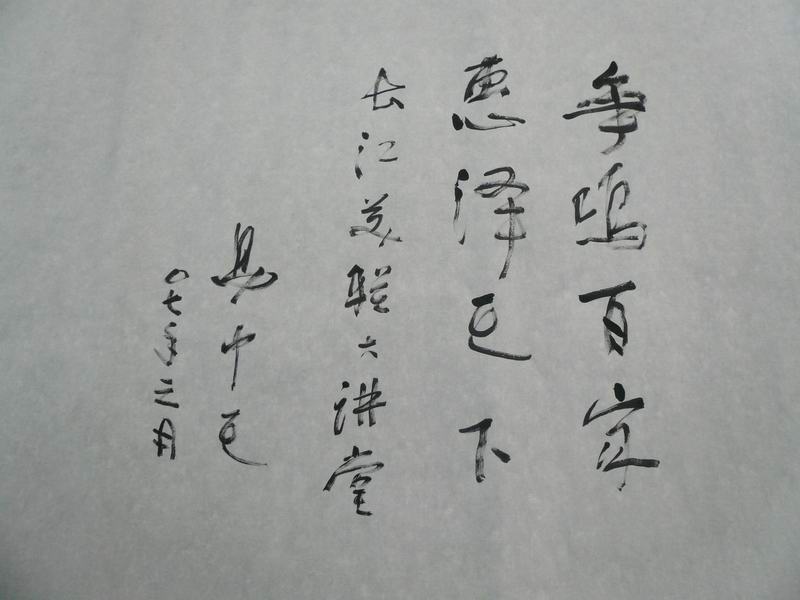 争鸣百家
惠泽天下
长江美联大讲堂
易中天
〇七年二月